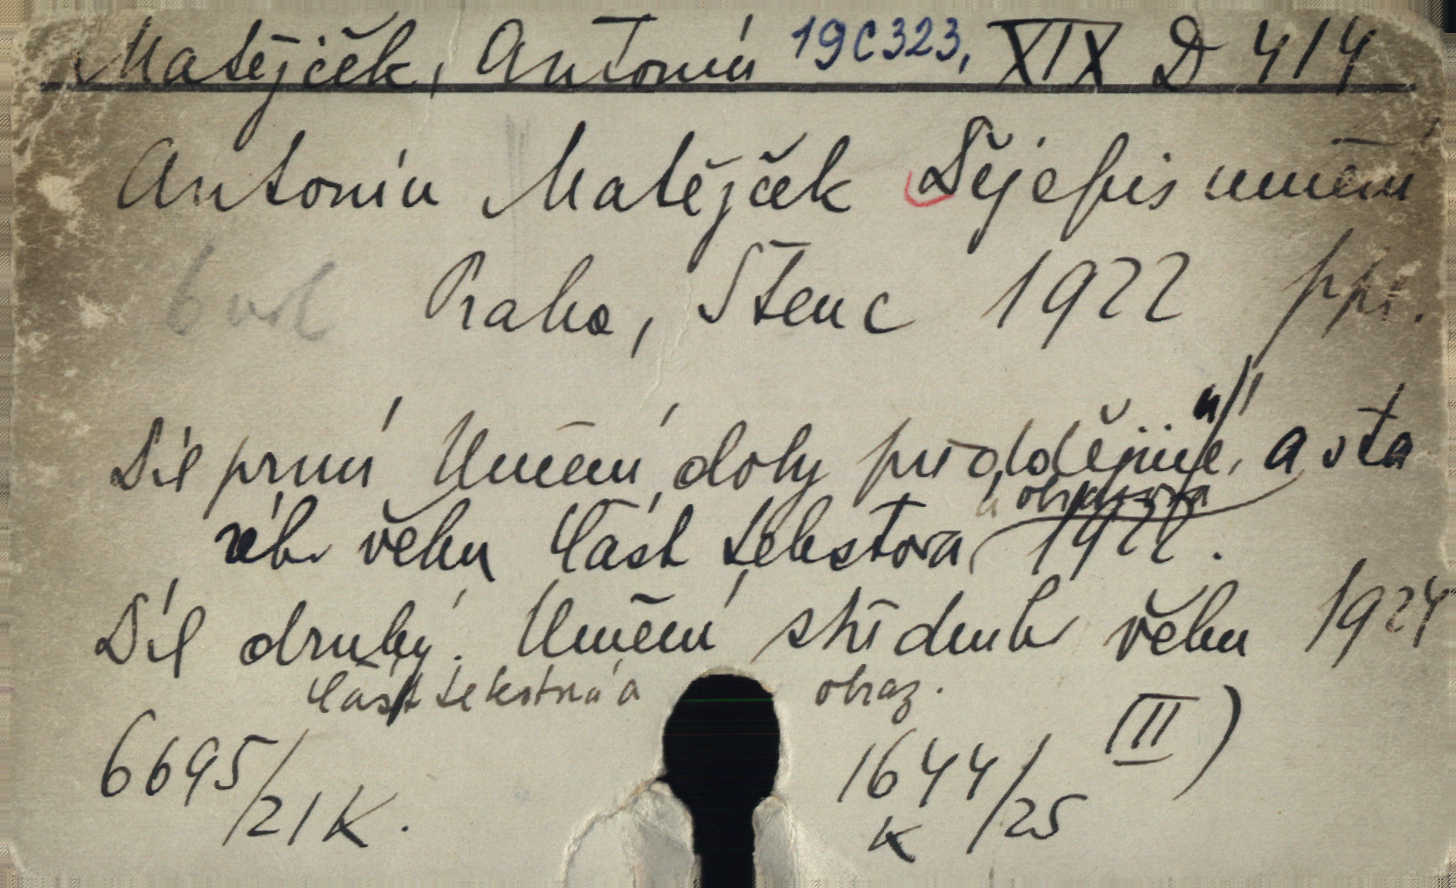 Matějček, Antonín 19C323, XIX D 414
Antonín Matějček Dějepis umění
6 vol Praha, Štenc 1922 ppr.
Díl první Umění doby předdějinné, a sta
rého věku Část tekstová a obrazová 1922.
Díl druhý. Umění středního věku 1924
Část tekstová a obraz.
6695/21 K. 1644/25 K (II)